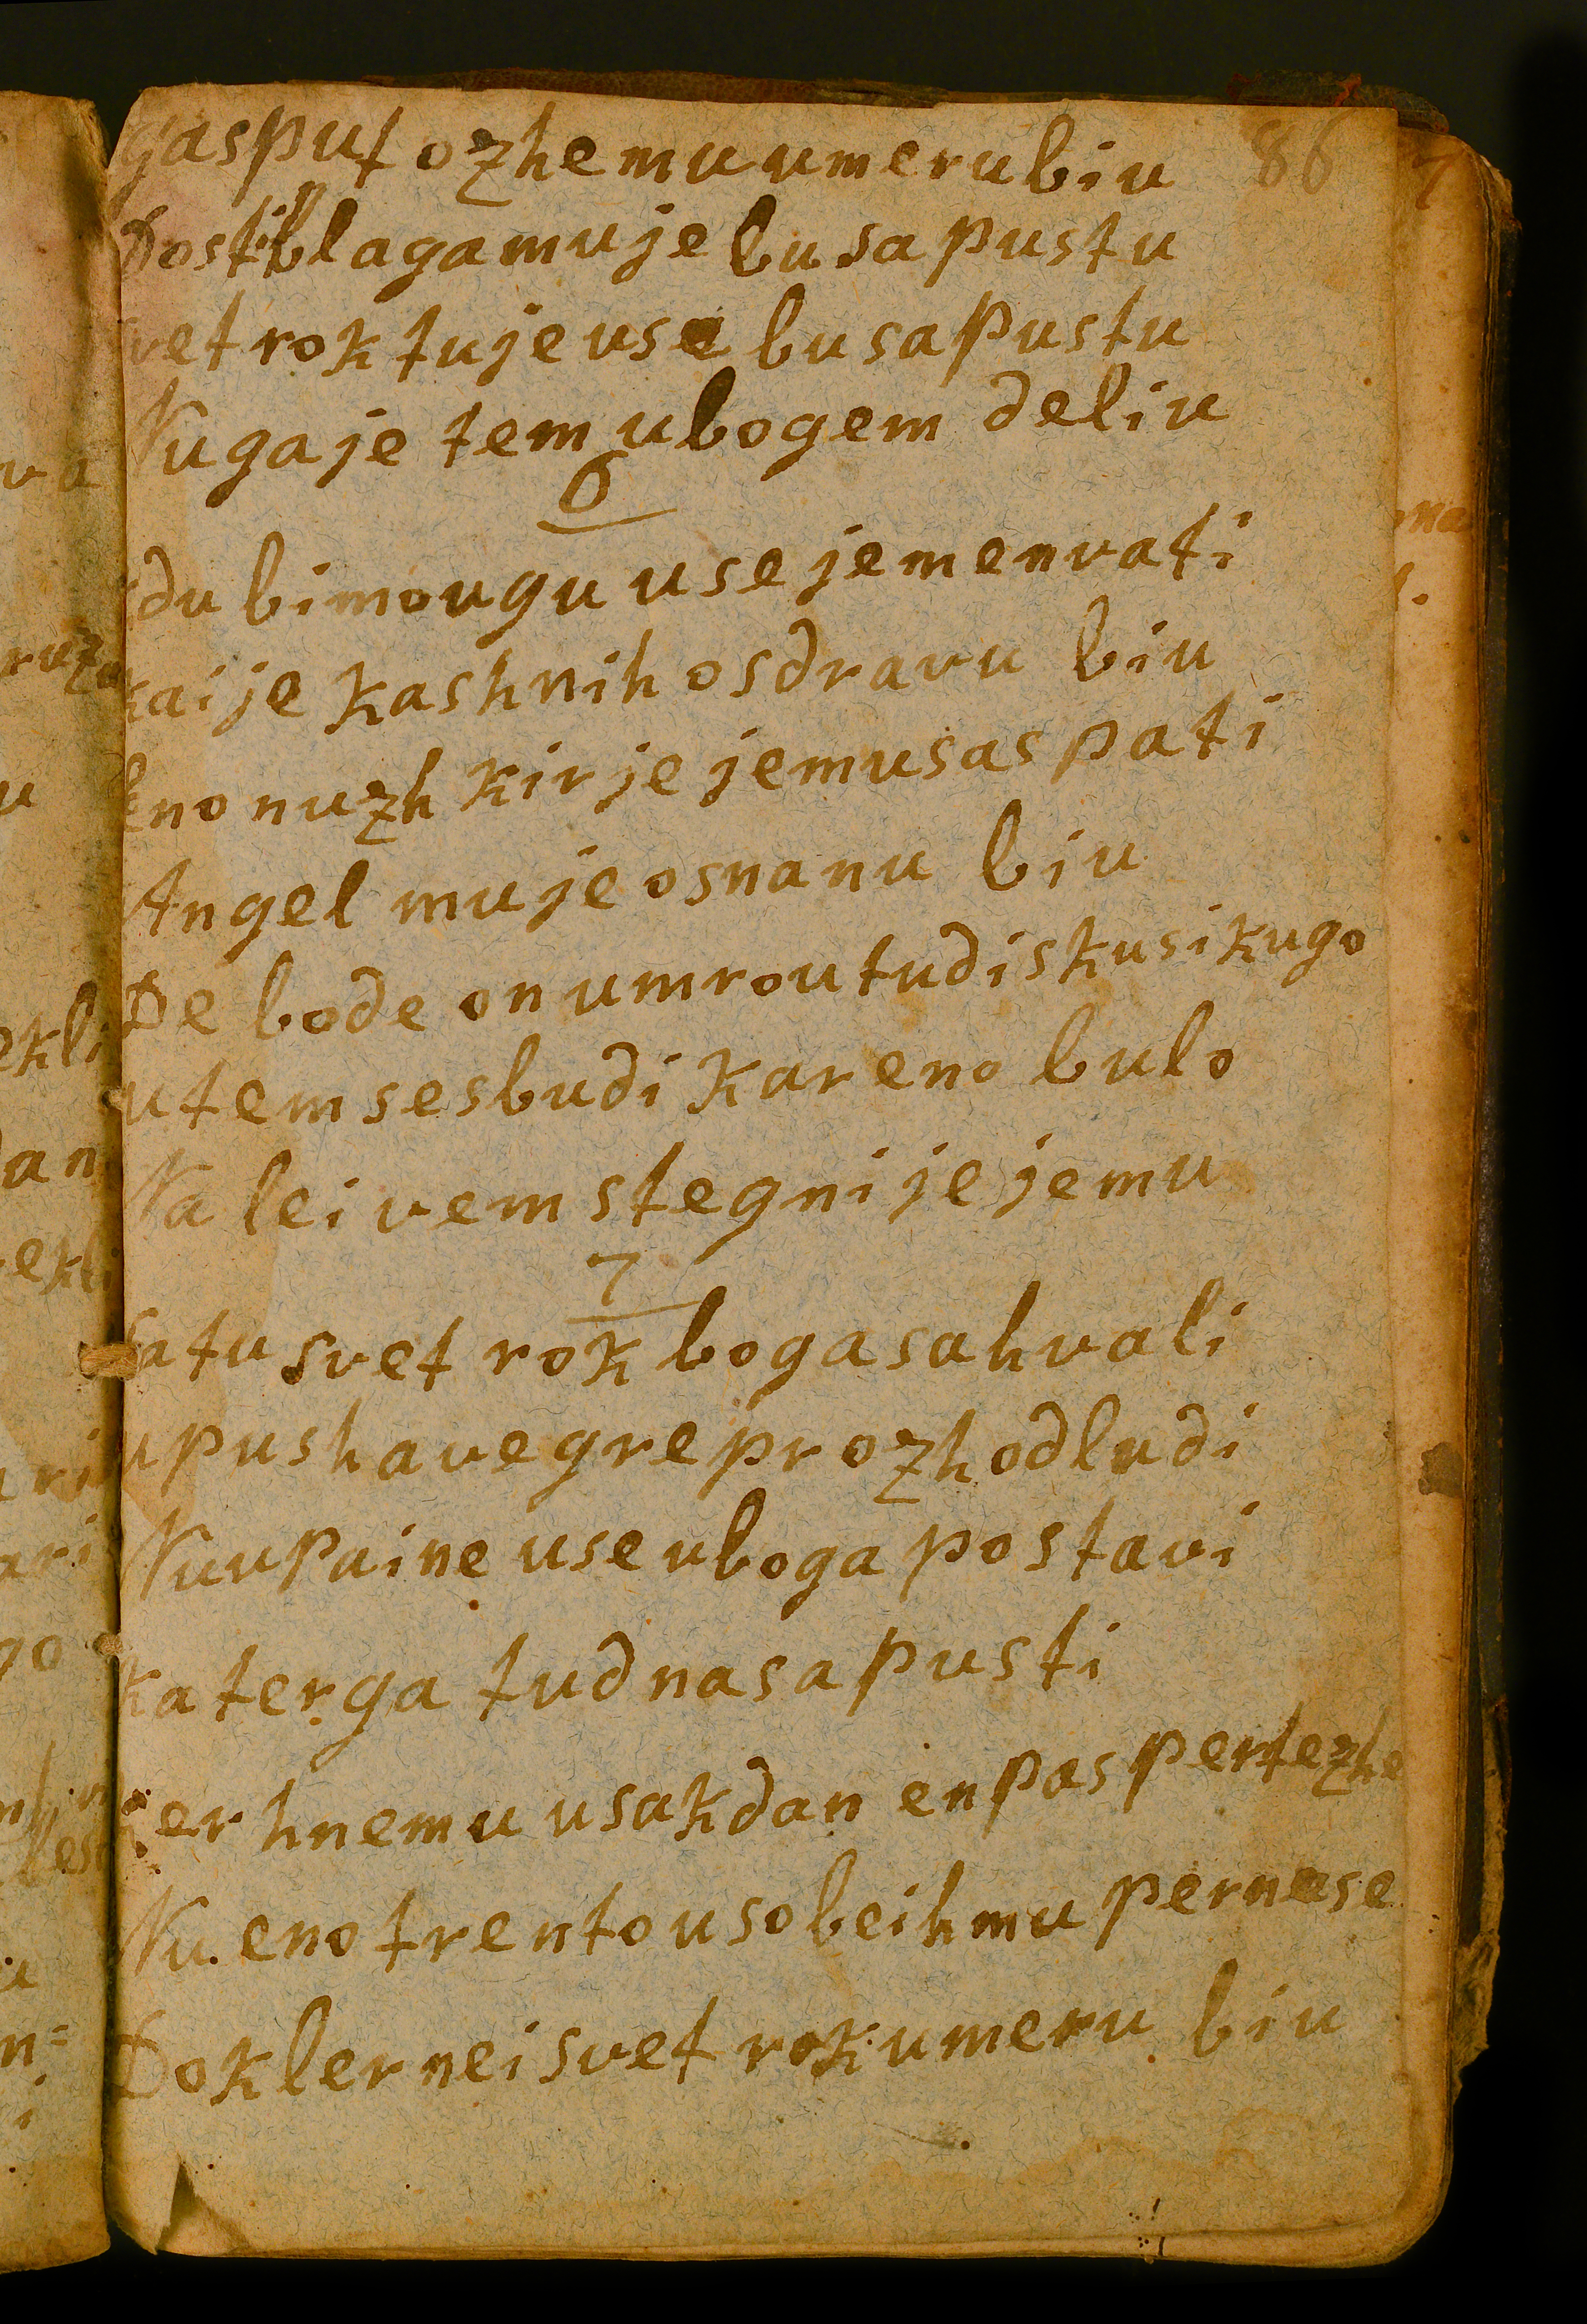 gasput ozhe mu umeru biu 86
Dosti blaga mu je bu sapustu
vet rok tu je use bu sapustu
Nu ga je tem ubogem deliu
6
du bi mougu use jemenvati
kai je kashnih osdravu biu
eno nuzh kir je jemu saspati
Angel mu je osnanu biu
De bode on umrou tudi skusi kugo
utem se sbudi kar eno bulo
Na leivem stegni je jemu
7
satu svet rok boga sahvali
u pushavegre prozh od ludi
Nu upaine use uboga postavi
kater ga tud na sapusti
ker hnemu usak dan en pas pertezhe
Nu eno trento usobeih mu pernese
Dokler nei svet rok umeru biu